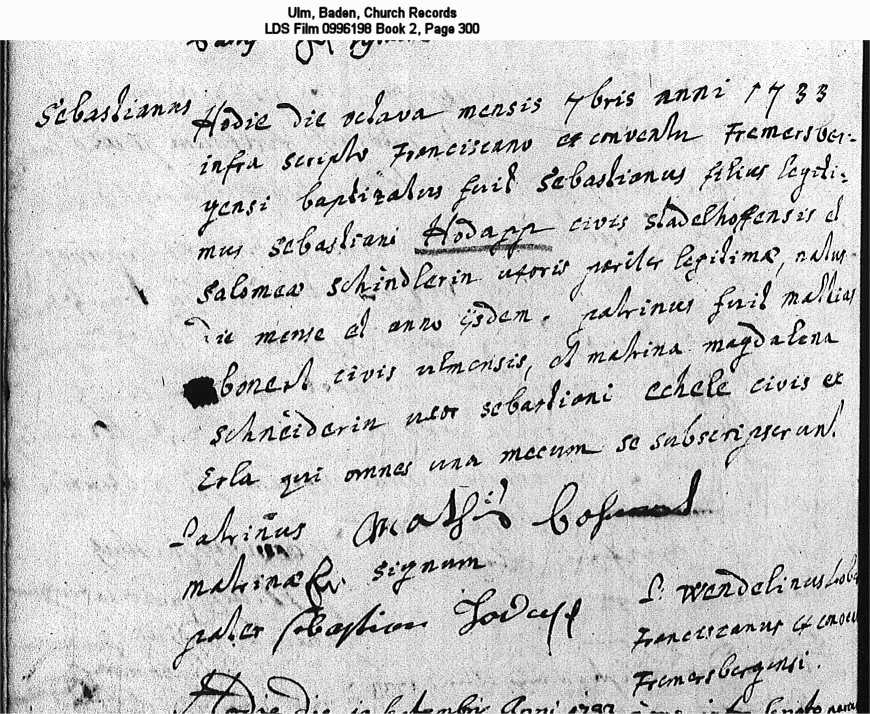 Ulm, Baden, Church Records
LDS Film 0996198 Book 2, Page 300
Sebastianus
Hodie die octava mensis 7bris anni 1733
infra scripto Franciscano ex conventu Fremersber-
gensi baptizatus fuit Sebastianus filius legiti-
mus Sebastiani Hodapp civis Stadelhoffensis et
Salomeæ Schindlerin uxoris pariter legitimæ, natus
die mense et anno ijsdem. patrinus fuit mattias
bonert civis ulmensis, et matrina magdalena
schneiderin uxor sebastiani echele civis ex
Erla qui omnes una mecum se subscripserunt.
Patrinus
matrinæ signum
pater sebastian Hodapp
P. Wendelinus
Franciscanus ex
Fremersbergensi.
Hodie die Anni